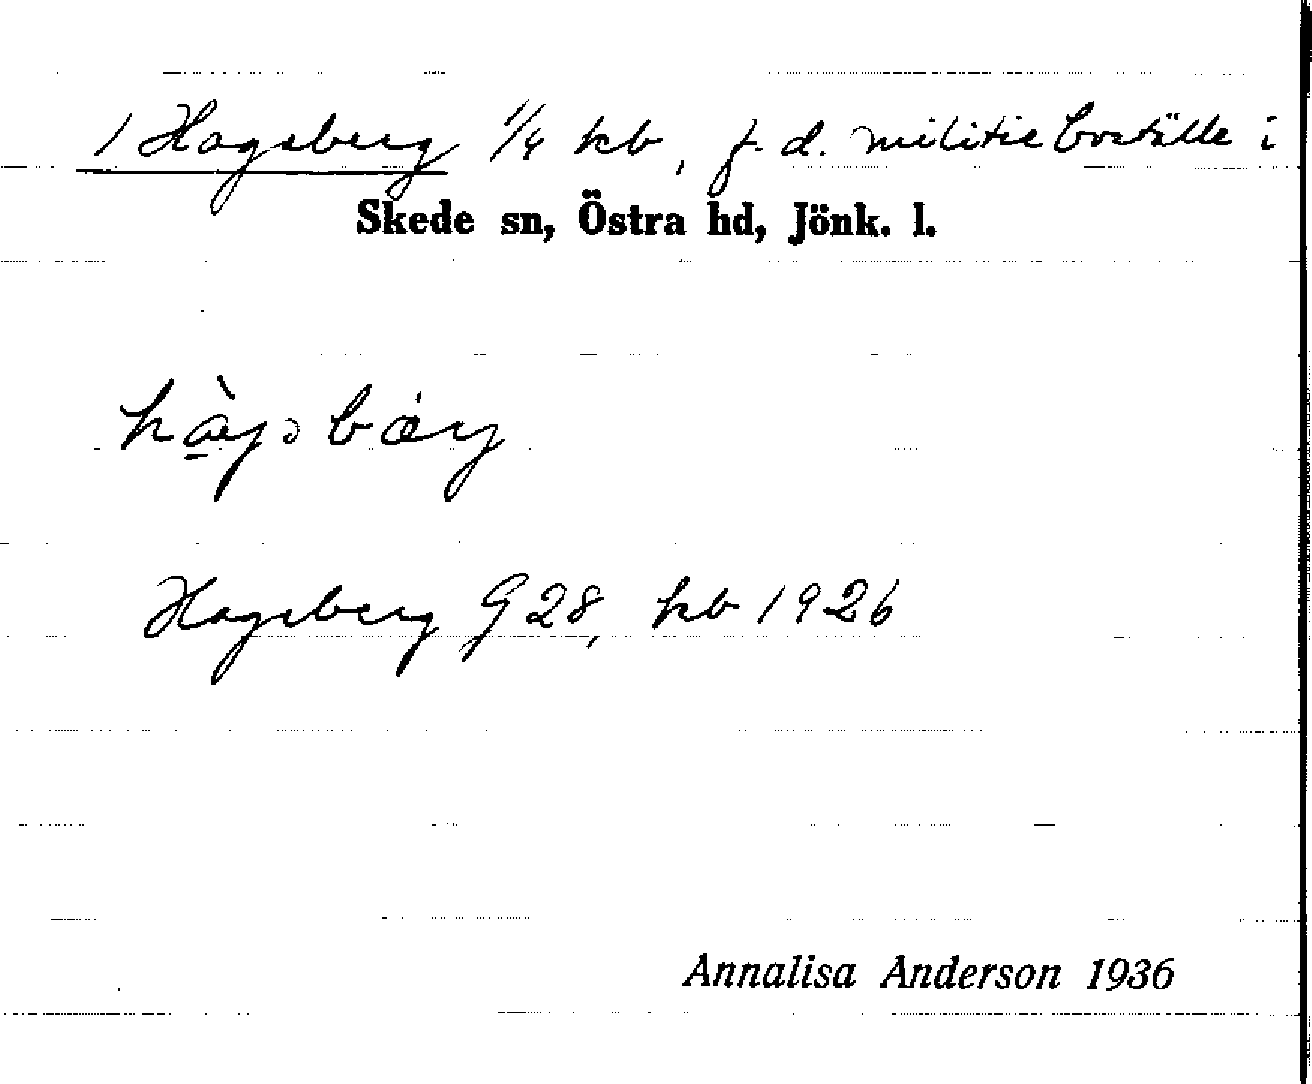 1 Hagsberg 1/4 kb, f. d. militieboställe i
Skede sn, Östra hd, Jönk. l.
Hagsberg G 28, kb 1926
Annalisa Anderson 1936